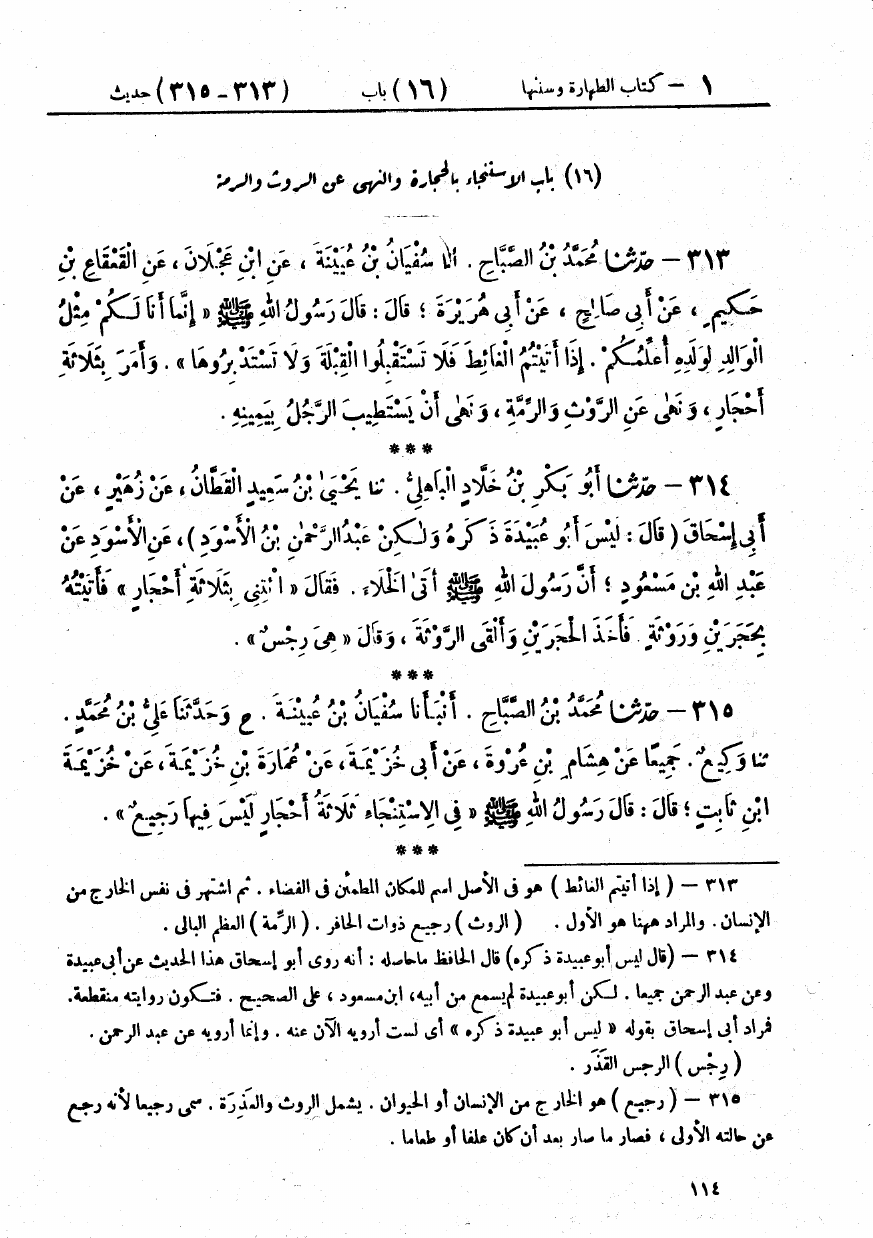 ١ – كتاب الطهارة وسننها (١٦) باب (٣١٣-٣١٥) حديث
(١٦) باب الاستنجاء بالحجارة والنهى عن الروث والرمة
٣١٣ – حدّثنا مُحَمَّدُ بْنُ الصَّبَّاحِ . أنا سُفْيَانُ بْنُ عُيَيْنَةَ ، عَنِ ابْنِ عَجْلَانَ ، عَنِ الْقَعْقَاعِ بْنِ
حَكِيمٍ ، عَنْ أَبِى صَالِحٍ ، عَنْ أَبِى هُرَيْرَةَ ؛ قَالَ : قَالَ رَسُولُ اللهِ ﷺ « إِنَّمَا أَنَا لَكُمْ مِثْلُ
الْوَالِدِ لِوَلَدِهِ أُعَلِّمُكُمْ . إِذَا أَتَيْتُمُ الْغَائِطَ فَلَا تَسْتَقْبِلُوا الْقِبْلَةَ وَلَا تَسْتَدْبِرُوهَا » . وَأَمَرَ بِثَلَاثَةِ
أَحْجَارٍ ، وَنَهَى عَنِ الرَّوْثِ وَالرِّمَّةِ ، وَنَهَى أَنْ يَسْتَطِيبَ الرَّجُلُ بِيَمِينِهِ .
***
٣١٤ – حدّثنا أَبُو بَكْرِ بْنُ خَلَّادٍ الْبَاهِلِىُّ . ثنا يَحْيَىٰ بْنُ سَعِيدٍ الْقَطَّانُ ، عَنْ زُهَيْرٍ ، عَنْ
أَبِى إِسْحَاقَ ( قَالَ : لَيْسَ أَبُو عُبَيْدَةَ ذَكَرَهُ وَلٰكِنْ عَبْدُ الرَّحْمٰنِ بْنُ الْأَسْوَدِ ) ، عَنِ الْأَسْوَدِ عَنْ
عَبْدِ اللهِ بْنِ مَسْعُودٍ ؛ أَنَّ رَسُولَ اللهِ ﷺ أَتَى الْخَلَاءَ . فَقَالَ « ائْتِنِى بِثَلَاثَةِ أَحْجَارٍ » فَأَتَيْتُهُ
بِحَجَرَيْنِ وَرَوْثَةٍ . فَأَخَذَ الْحَجَرَيْنِ وَأَلْقَى الرَّوْثَةَ ، وَقَالَ « هِىَ رِجْسٌ » .
***
٣١٥ – حدّثنا مُحَمَّدُ بْنُ الصَّبَّاحِ . أَنْبَأَنَا سُفْيَانُ بْنُ عُيَيْنَةَ . ح وَحَدَّثَنَا عَلِىُّ بْنُ مُحَمَّدٍ .
ثنا وَكِيعٌ . جَمِيعًا عَنْ هِشَامِ بْنِ عُرْوَةَ ، عَنْ أَبِى خُزَيْمَةَ ، عَنْ عُمَارَةَ بْنِ خُزَيْمَةَ ، عَنْ خُزَيْمَةَ
ابْنِ ثَابِتٍ ؛ قَالَ : قَالَ رَسُولُ اللهِ ﷺ « فِى الِاسْتِنْجَاءِ ثَلَاثَةُ أَحْجَارٍ لَيْسَ فِيهَا رَجِيعٌ » .
***
٣١٣ – ( إذا أتيتم الغائط ) هو فى الأصل اسم للمكان المطمئن فى الفضاء . ثم اشتهر فى نفس الخارج من
الإنسان . والمراد ههنا هو الأول . ( الروث ) رجيع ذوات الحافر . ( الرِّمة ) العظم البالى .
٣١٤ – ( قال ليس أبو عبيدة ذكره ) قال الحافظ ماحاصله : أنه روى أبو إسحاق هذا الحديث عن أبى عبيدة
وعن عبد الرحمن جميعا . لكن أبو عبيدة لم يسمع من أبيه، ابن مسعود ، على الصحيح . فتكون روايته منقطعة.
فمراد أبى إسحاق بقوله « ليس أبو عبيدة ذكره » أى لست أرويه الآن عنه . وإنما أرويه عن عبد الرحمن .
( رِجْس ) الرجس القَذَر .
٣١٥ – ( رجيع ) هو الخارج من الإنسان أو الحيوان . يشمل الروث والعَذِرَة . سمى رجيعا لأنه رجع
عن حالته الأولى ، فصار ما صار بعد أن كان علفا أو طعاما .
١١٤